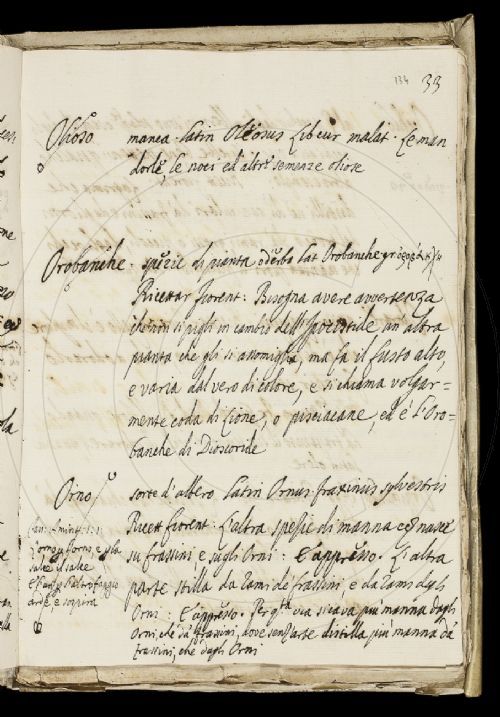 134 33
Oglioso manca Latin Oleosus Libr cur malat. Le man
dorle, le noci ed altre semenze oliose
Orobanche. spezie di pianta o d'erba Lat Orobanche gr
Ricettar fiorent: Bisogna avere avvertenza
che non si pigli in cambio dell'Ipocistide un'altra
pianta che gli si assomiglia, ma fa il fusto alto,
e varia dal vero di colore, e si chiama volgar-
mente coda di Lione, o pisciacane, ed è l'Oro-
banche di Dioscoride
Orno sorte d'albero Latin Ornus fraxinus sylvestris
Ricett fiorent: L'altra spezie di manna che nasce
su frassini, e sugli Orni: E appresso. L'altra
parte stilla da rami de frassini, e da rami degli
Orni: E appresso. Per q.ta via si cava più manna dagli
Orni, che da frassini, dove senz'arte distilla più manna da
frassini, che dagli Orni
l'orno, e
salce il salce
arde, e sospira